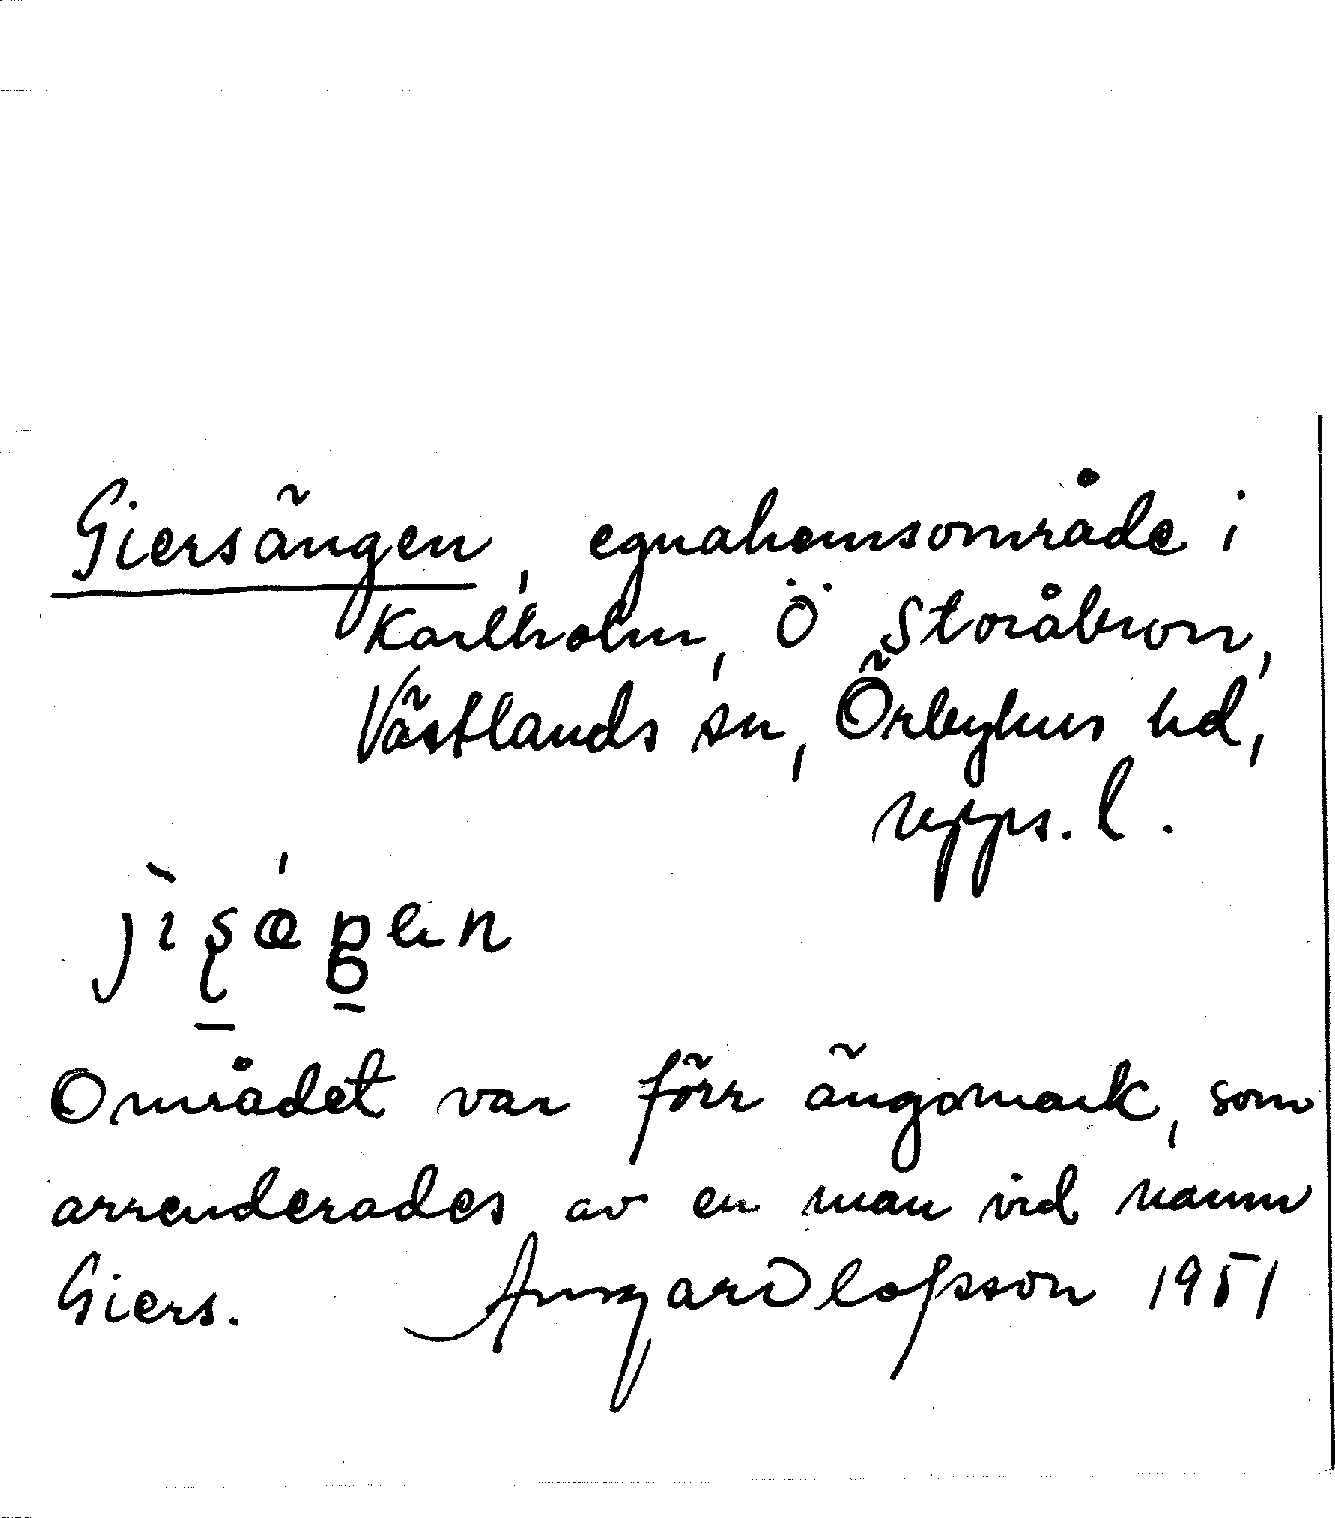 Giersängen, egnahemsområde i
Karlholm, Ö Storåbron,
Västlands sn, Örbyhus hd,
Upps. l.
Området var förr ängsmark, som
arrenderades av en man vid namn
Giers. Olofsson 1951